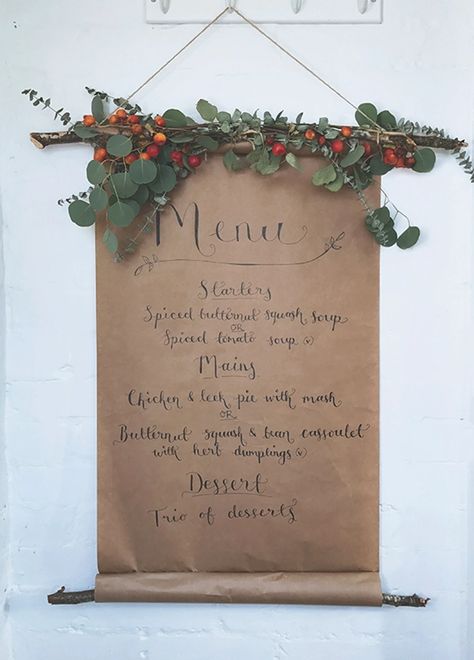 Menu
Starters
Spiced butternut squash soup
OR
Spiced tomato soup (v)
Mains
Chicken & leek pie with mash
OR
Butternut squash & bean cassoulet
with herb dumplings (v)
Dessert
Trio of desserts